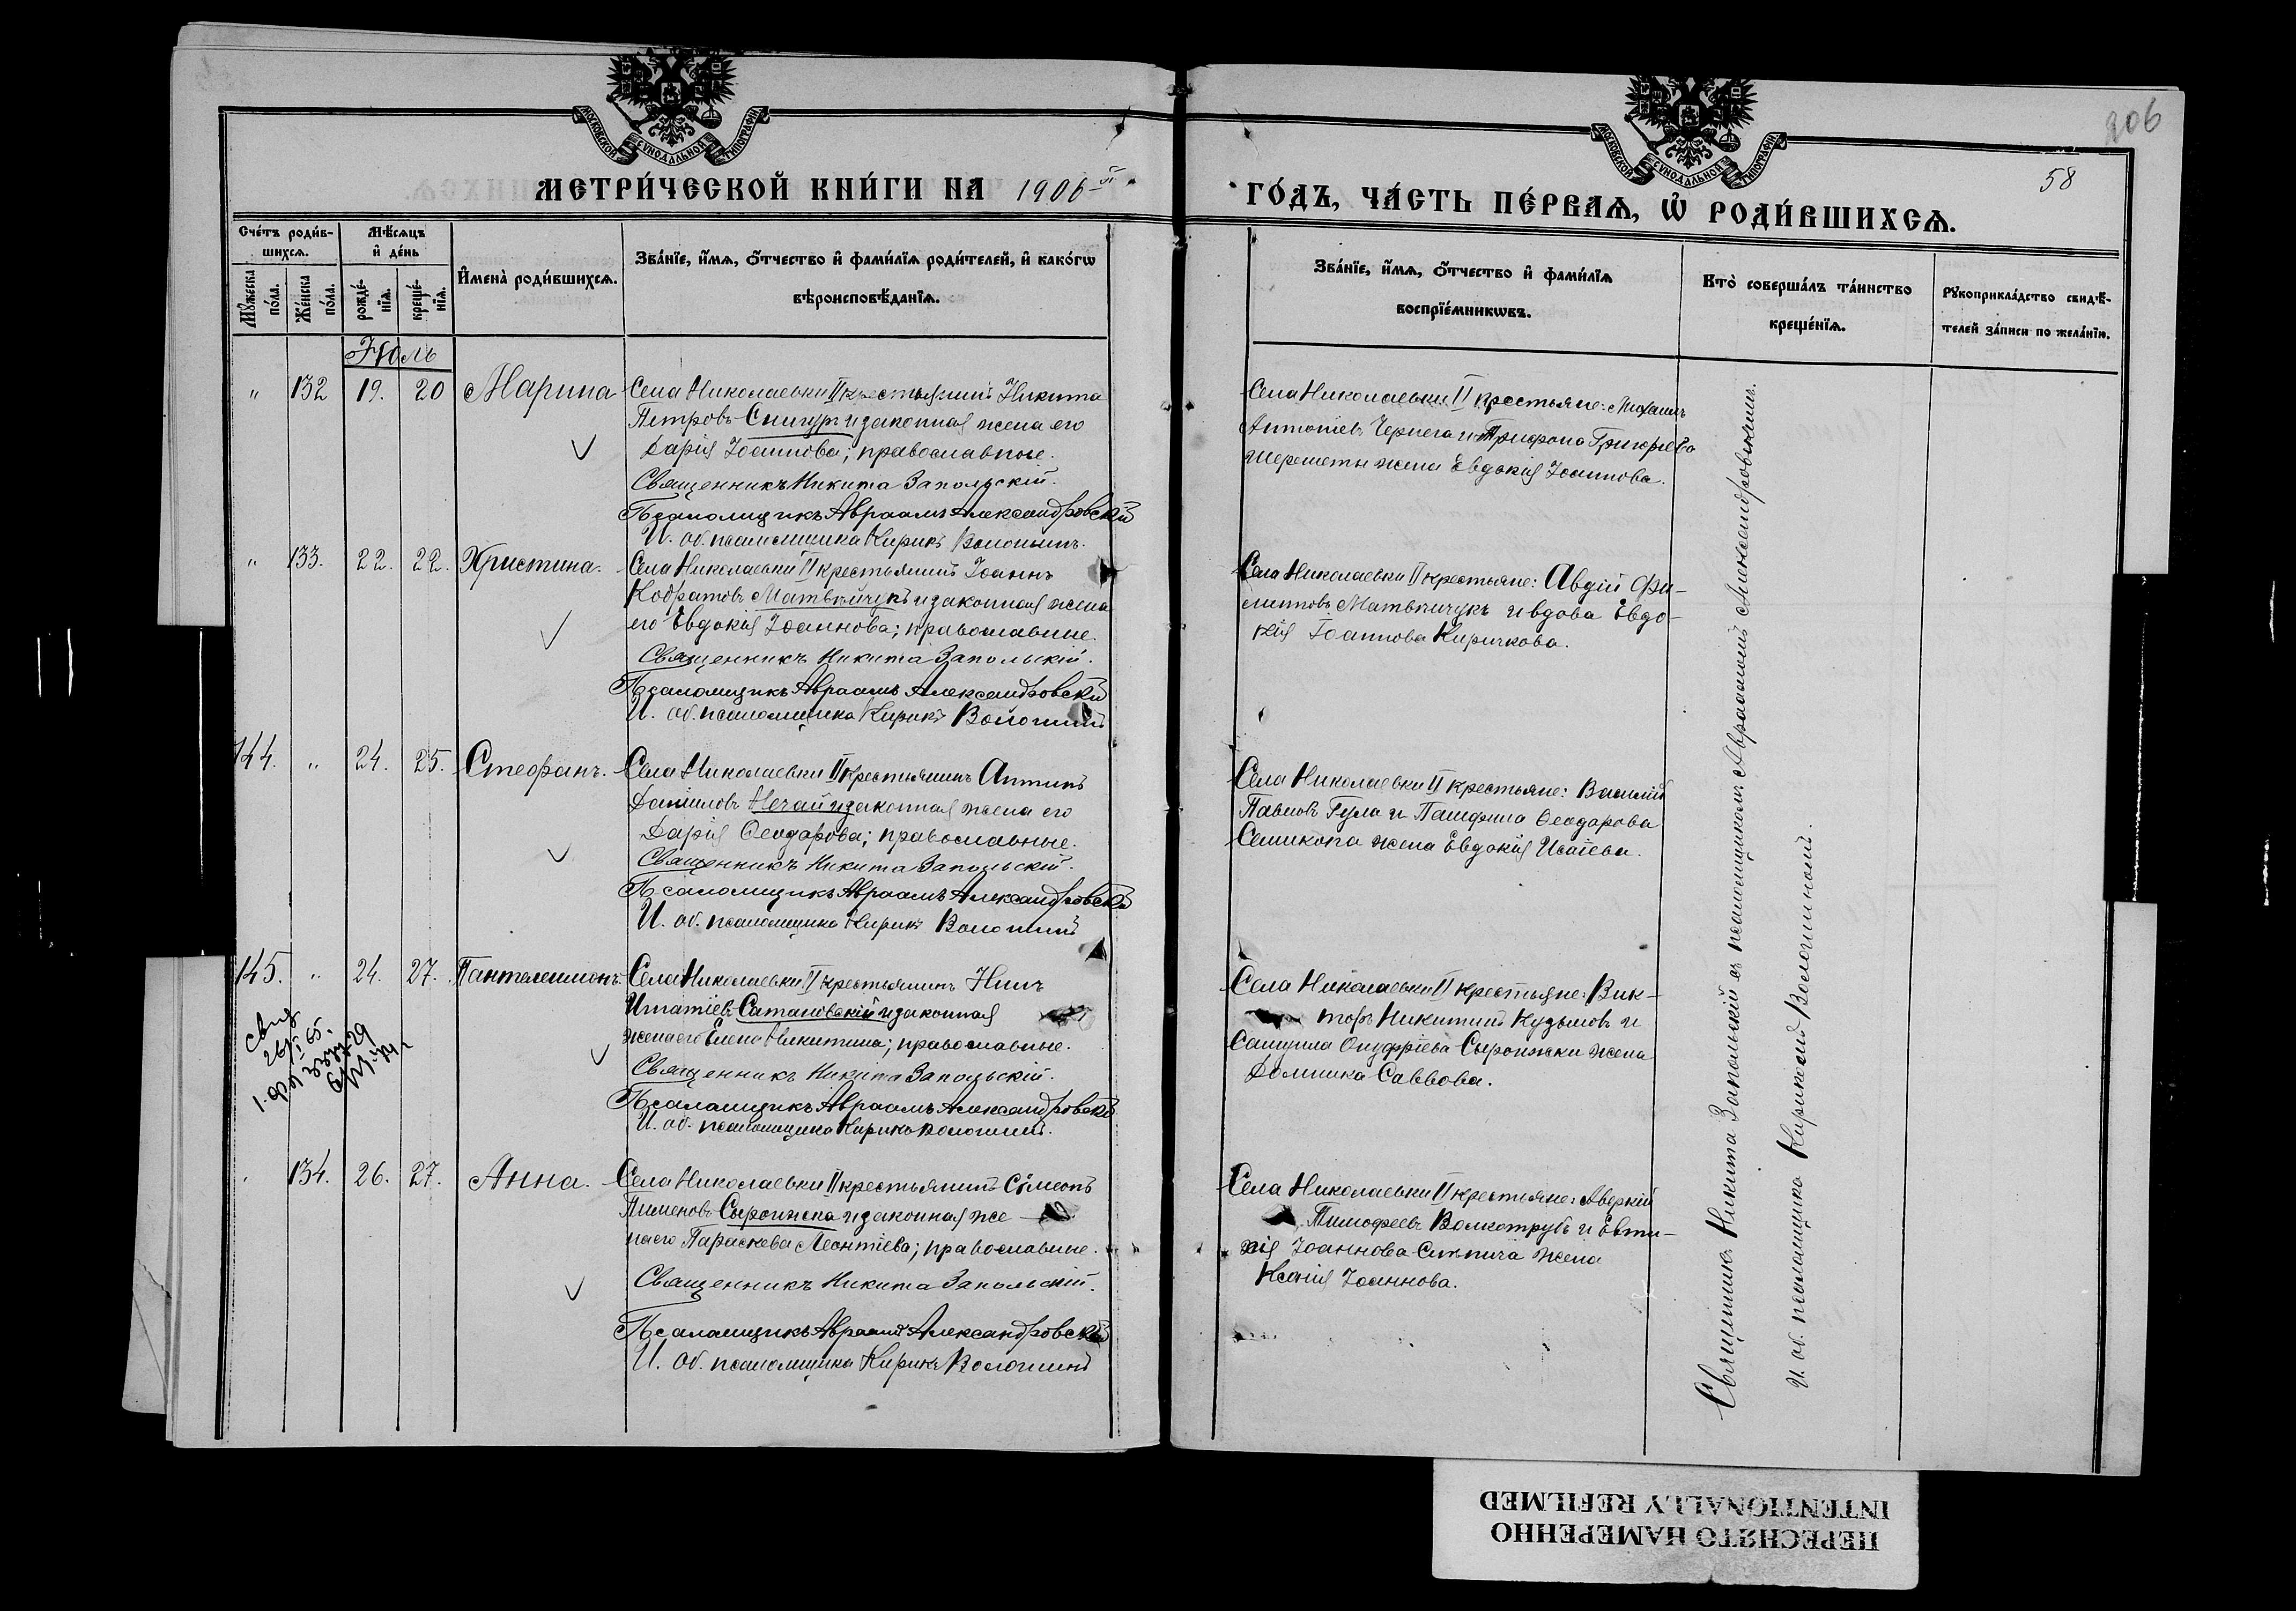 206
58
МОСКОВСКОЙ СѴНОДАЛЬНОЙ ТИПОГРАФІИ
МОСКОВСКОЙ СѴНОДАЛЬНОЙ ТИПОГРАФІИ
МЕТРИ́ЧЕСКОЙ КНИ́ГИ НА 1906-й
ГО́ДЪ, ЧА́СТЬ ПЕ́РВАѦ, Ѽ РОДИ́ВШИХСѦ.
Сче́тъ роди́вшихсѧ.
Мꙋжеска по́ла.
Же́нска по́ла.
Мѣ́сѧцъ и҆ де́нь
рожде́нїѧ.
креще́нїѧ.
И҆мена̀ роди́вшихсѧ.
Зва́нїе, и҆́мѧ, ѻ҆́тчество и҆ фами́лїѧ роди́телей, и҆ како́гѡ
вѣроисповѣ́данїѧ.
Зва́нїе, и҆́мѧ, ѻ҆́тчество и҆ фами́лїѧ
воспрїе́мникѡвъ.
Кто̀ соверша́лъ та́инство
креще́нїѧ.
Рꙋкоприкла́дство свидѣ́-
телей за́писи по жела́нїю.
Іюль
" 132 19. 20 Марина
Села Николаевки II крестьянинъ Никита
Петровъ Снигуръ и законная жена его
Дарія Іоаннова; православные.
Священникъ Никита Запольскій.
Псаломщикъ Авраамъ Александровскій
И. об. псаломщика Кирикъ Волошинъ.
Села Николаевки II крестьяне: Михаилъ
Антоніевъ Чернега и Трифона Григорьева
Шереметы жена Евдокія Іоаннова.
" 133. 22. 22. Христина.
Села Николаевки II крестьянинъ Іоаннъ
Кодратовъ Матвѣйчукъ и законная жена
его Евдокія Іоаннова; православные.
Священникъ Никита Запольскій.
Псаломщикъ Авраамъ Александровскій
И. об. псаломщика Кирикъ Волошинъ
Села Николаевки II крестьяне: Авдій Фи-
липповъ Матвѣйчукъ и вдова Евдо-
кія Іоаннова Киричкова.
144. " 24. 25. Стефанъ.
Села Николаевки II крестьянинъ Антипъ
Даніиловъ Нечай и законная жена его
Дарія Ѳеодорова; православные.
Священникъ Никита Запольскій.
Псаломщикъ Авраамъ Александровскій
И. об. псаломщика Кирикъ Волошинъ
Села Николаевки II крестьяне: Василій
Павловъ Гула и Памфила Ѳеодорова
Семикопа жена Евдокія Исаіева.
145. " 24. 27. Пантелеимонъ.
Села Николаевки II крестьянинъ Нилъ
Игнатіевъ Сатановскій и законная
жена его Елена Никитина; православные.
Священникъ Никита Запольскій.
Псаломщикъ Авраамъ Александровскій
И. об. псаломщика Кирикъ Волошинъ.
Села Николаевки II крестьяне: Вик-
торъ Никитинъ Кузьмовъ и
Самуила Онуфріева Сыроижки жена
Домника Саввова.
134. 26. 27. Анна.
Села Николаевки II крестьянинъ Сѵмеонъ
Пименовъ Сыроижка и законная же-
на его Параскева Леонтіева; православные.
Священникъ Никита Запольскій.
Псаломщикъ Авраамъ Александровскій
И. об. псаломщика Кирикъ Волошинъ
Села Николаевки II крестьяне: Аверкій
Тимофеевъ Волкотрубъ и Евти-
хія Іоаннова жена
Ксенія Іоаннова.
Священникъ Никита Запольскій съ псаломщикомъ Авраамомъ Александровскимъ.
И. об. псаломщика Кирикомъ Волошинымъ.
ПЕРЕСНЯТО НАМЕРЕННО
INTENTIONALLY REFILMED